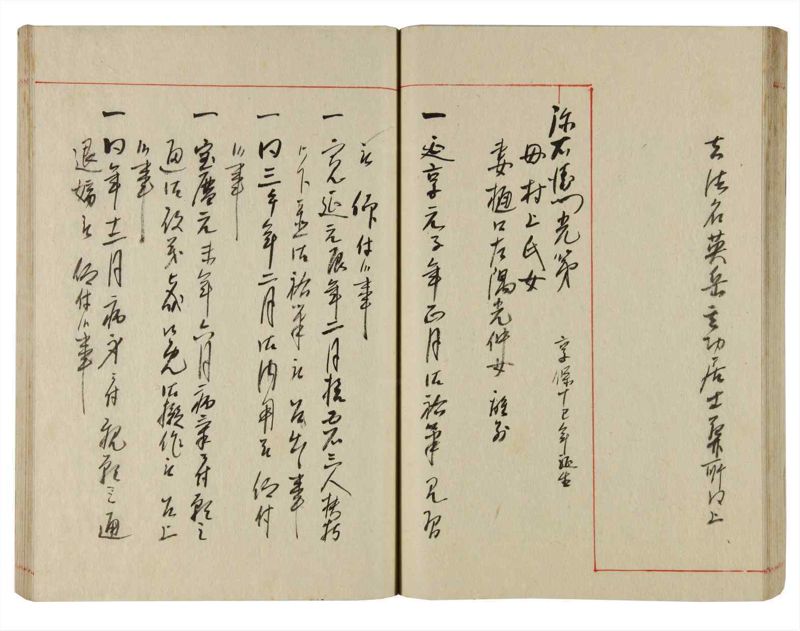 去法名英岳玄功居士葬所同上
弥右衛門光第 享保丁巳年誕生
母村上氏女
妻樋口左陽光仲女 離別
一延享元子年正月御祐筆見習
被 仰付候事
一寛延元辰年二月 三人扶持
被下置御祐筆被 召出候事
一同三午年二月御内用被 仰付
候事
一宝暦元未年六月病気ニ付願之
通御役義 御免御擬作被 召上
候事
一同年十二月病身ニ付親願之通
退嫡被 仰付候事